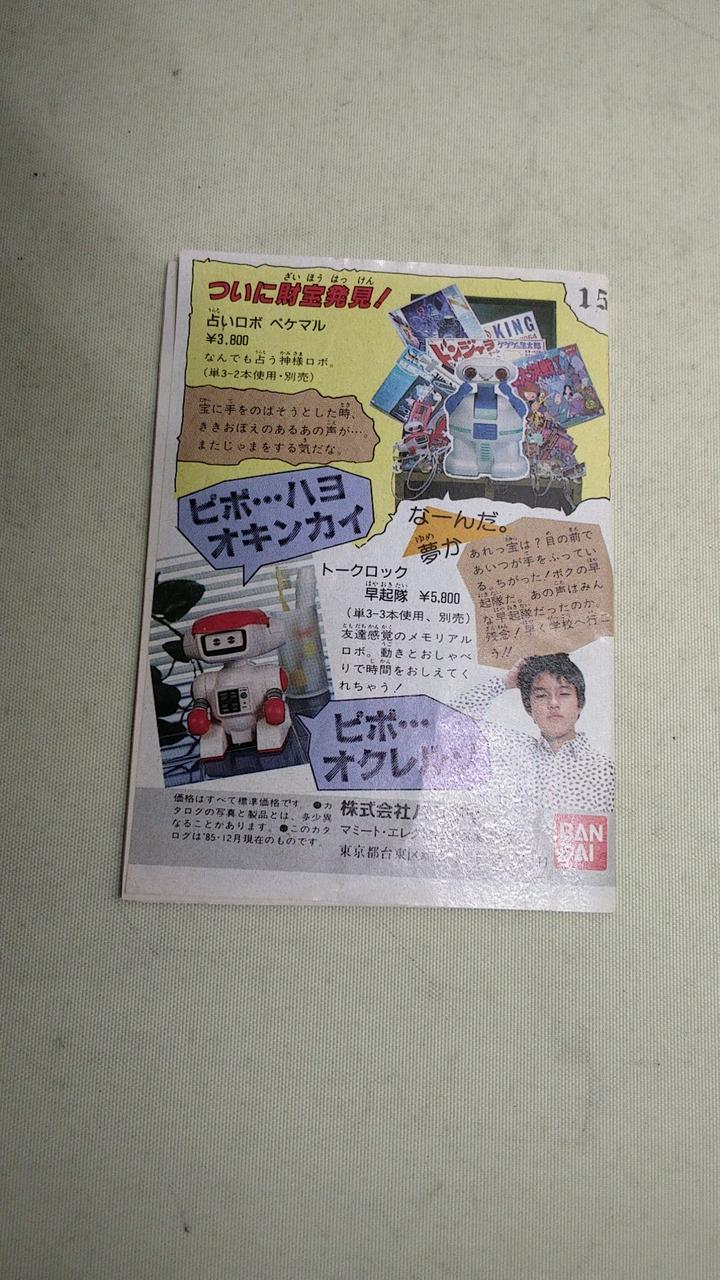 ついに財宝発見！
ざいほうはっけん
15
占いロボ ペケマル
うらな
¥3,800
なんでも占う神様ロボ。
うらな かみさま
(単3-2本使用・別売)
KING
ドンジャラ
ゲゲゲの鬼太郎
宝に手をのばそうとした時、
たから て とき
ききおぼえのあるあの声が…。
こえ
またじゃまをする気だな。
き
ピポ…ハヨ
オキンカイ
なーんだ。
夢か
ゆめ
あれっ宝は？目の前で
あいつが手をふってい
る。ちがった！ボクの早
起隊だ。あの声はみん
な早起隊だったのか。
残念！早く学校へ行こ
う!!
トークロック
早起隊 ¥5,800
はやおきたい
(単3-3本使用、別売)
友達感覚のメモリアル
ともだちかんかく
ロボ。動きとおしゃべ
うご
りで時間をおしえてく
じかん
れちゃう！
ピポ…
オクレルゾ
価格はすべて標準価格です。●カ
タログの写真と製品とは、多少異
なることがあります。●このカタ
ログは'85・12月現在のものです。
株式会社
マミート・エレク
東京都台東区
BAN
DAI